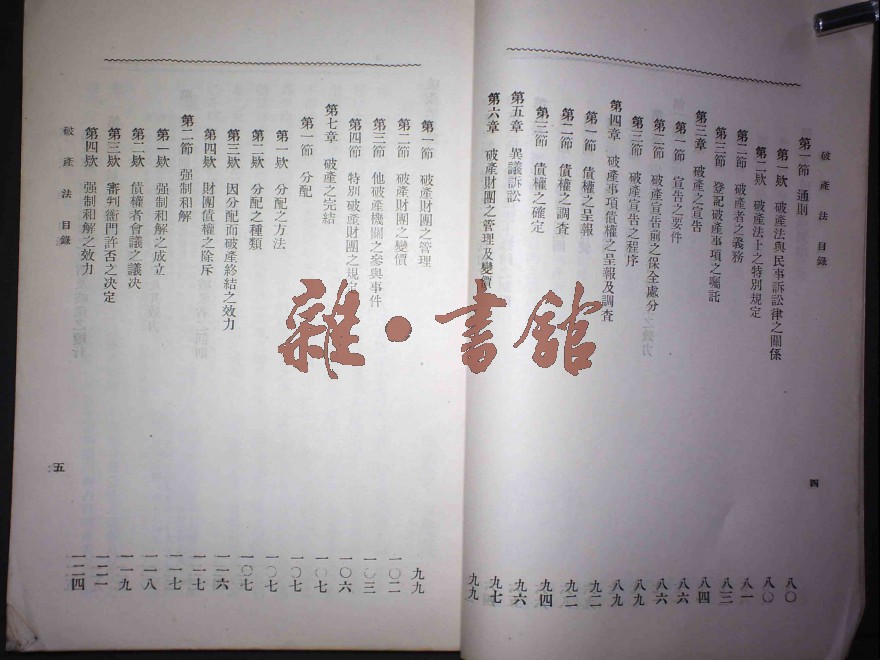 破產法 目錄
四
第一節 通則 八〇
第一欵 破產法與民事訴訟律之關係 八〇
第二欵 破產法上之特別規定 八一
第二節 破產者之義務 八三
第三節 登記破產事項之囑託 八四
第三章 破產之宣告 八六
第一節 宣告之要件 八六
第二節 破產宣告前之保全處分
第三節 破產宣告之程序 八九
第四章 破產事項債權之呈報及調查 九二
第一節 債權之呈報 九二
第二節 債權之調查 九四
第三節 債權之確定 九六
第五章 異議訴訟 九七
第六章 破產財團之管理及變價 九九
第一節 破產財團之管理 九九
第二節 破產財團之變價 一〇二
第三節 他破產機關之參與事件 一〇三
第四節 特別破產財團之規定 一〇六
第七章 破產之完結 一〇七
第一節 分配 一〇七
第一欵 分配之方法 一〇七
第二欵 分配之種類 一〇七
第三欵 因分配而破產終結之效力 一一六
第四欵 財團債權之除斥 一一七
第二節 强制和解 一一七
第一欵 强制和解之成立 一一八
第二欵 債權者會議之議決 一一九
第三欵 審判衙門許否之決定 一二一
第四欵 强制和解之效力 一二四
破產法 目錄
五
雜·書館